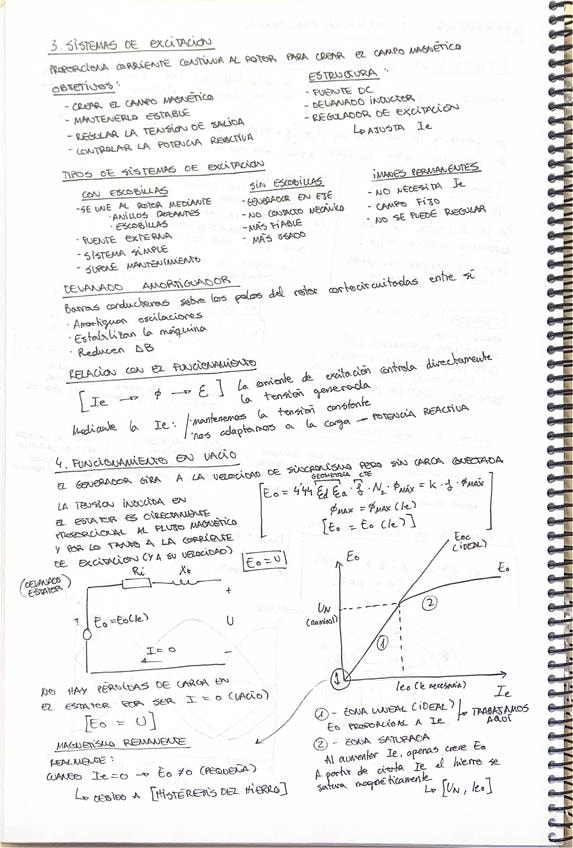 3. SISTEMAS DE EXCITACION
PROPORCIONA CORRIENTE CONTINUA AL ROTOR PARA CREAR EL CAMPO MAGNÉTICO
OBJETIVOS:
- CREAR EL CAMPO MAGNÉTICO
- MANTENERLO ESTABLE
- REGULAR LA TENSION DE SALIDA
- CONTROLAR LA POTENCIA REACTIVA
ESTRUCTURA:
- FUENTE DC
- DEVANADO INDUCTOR
- REGULADOR DE EXCITACIÓN
↳ AJUSTA Ie
TIPOS DE SISTEMAS DE EXCITACION
CON ESCOBILLAS
- SE UNE AL ROTOR MEDIANTE
· ANILLOS ROZANTES
· ESCOBILLAS
- FUENTE EXTERNA
- SISTEMA SIMPLE
- SUPONE MANTENIMIENTO
SIN ESCOBILLAS
- GENERADOR EN EJE
- NO CONTACTO MECÁNICO
- MÁS FIABLE
- MÁS USADO
IMANES PERMANENTES
- NO NECESITA Ie
- CAMPO FIJO
- NO SE PUEDE REGULAR
DEVANADO AMORTIGUADOR
Barras conductoras sobre los polos del rotor cortocircuitadas entre sí
· Amortiguan oscilaciones
· Estabilizan la máquina
· Reducen ΔB
RELACION CON EL FUNCIONAMIENTO
[Ie → ϕ → E] la corriente de excitación controla directamente
la tensión generada
Mediante la Ie: · mantenemos la tensión constante
· nos adaptamos a la carga → POTENCIA REACTIVA
4. FUNCIONAMIENTO EN VACÍO
EL GENERADOR GIRA A LA VELOCIDAD DE SINCRONISMO PERO SIN CARGA CONECTADA
LA TENSION INDUCIDA EN
EL ESTATOR ES DIRECTAMENTE
PROPORCIONAL AL FLUJO MAGNÉTICO
Y POR LO TANTO A LA CORRIENTE
DE EXCITACIÓN (Y A SU VELOCIDAD)
GEOMETRÍA CTE
[E0 = 4'44 ξd ξa · f · N2 · ϕmáx = k · f · ϕmáx
ϕmax = ϕmax (Ie)
[E0 = E0 (Ie)]]
E0 = U
(DEVANADO
ESTATOR)
Ri
Xs
+
E0 = E0(Ie)
U
I = 0
-
E0
E0c
(IDEAL)
E0
UN
(nominal)
①
②
1
Ie0 (Ie necesaria)
Ie
NO HAY PÉRDIDAS DE CARGA EN
EL ESTATOR POR SER I = 0 (VACÍO)
[E0 = U]
MAGNETISMO REMANENTE
REALMENTE:
CUANDO Ie = 0 → E0 ≠ 0 (PEQUEÑA)
↳ DEBIDO A [HISTERESIS DEL HIERRO]
① - ZONA LINEAL (IDEAL)
E0 PROPORCIONAL A Ie
↳ TRABAJAMOS
AQUÍ
② - ZONA SATURADA
Al aumentar Ie, apenas crece E0
A partir de cierta Ie el hierro se
satura magnéticamente
↳ [UN, Ie0]